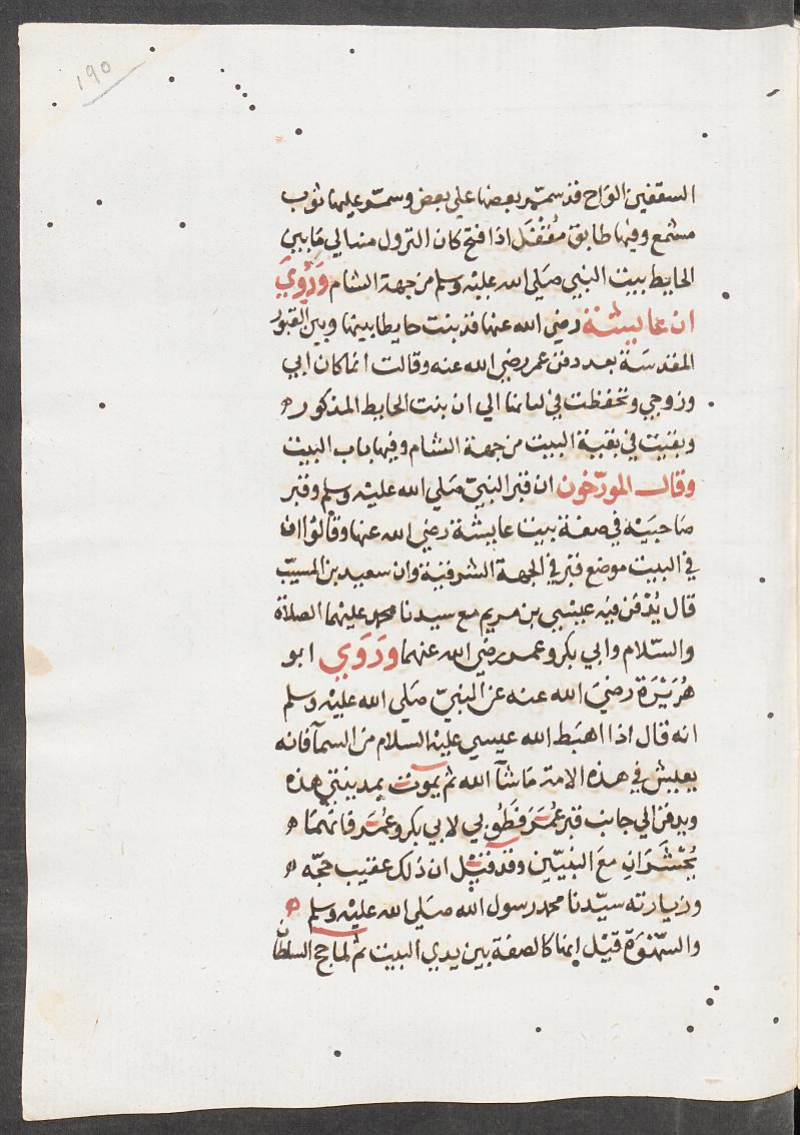 ١٩٥
السقفين الواح قد سمّر بعضها علي بعض وسمّو عليها ثوب
مشمع وفيها طابق مُقْفَل اذا فتح كان النزول منه الي مابين
الحايط ببيت النبي صَلي الله عليْه وسلم من جهة الشام وَرُوِيَ
ان عايشة رضي الله عنها قد بنت حايطا بينها وبين القبور
المقدسَة بعد دفن عمر رضي الله عنه وقالت انما كان ابي
وزوجي وتحفظت في لباسها الي ان بنت الحايط المذكور ه
وبقيت في بقية البيت من جهة الشام وفيها باب البيت
وقال المورّخون ان قبر النبيّ صَلي الله عليْه وسلم وقبر
صَاحبَيْه في صفة بيت عايشة رضي الله عنها وقالوا ان
في البيت موضع قبر في الجهة الشرقية وان سعيد بن المسيّب
قال يُدْفن فيه عيْسي بن مريم مع سيدنا محمد عليهما الصلاة
والسّلام وابي بكر وعمر رضي الله عنهما ورَوَي ابو
هُرَيْرَة رضيَ الله عنه عن النبيّ صَلي الله عليْه وسلم
انه قال اذا اهبَط الله عيسي عليْه السلام من السمآ فانه
يعيش في هذه الامة مَاشآ الله ثم يموت بمدينتي هذه
ويدفن الي جانب قبر عمَرَ فطُوبي لابي بكر وعُمَر فانهمَا ه
يُحْشَرَانِ معَ النبيّين وقد قيْل ان ذلك عقيب حجّه ه
وزيارته سيّدنا محمد رسول الله صَلي الله عليْه وسلم ه
والسّهْوَة قيْل انها كالصفة بين يدي البيت ثم لماحج السلطان